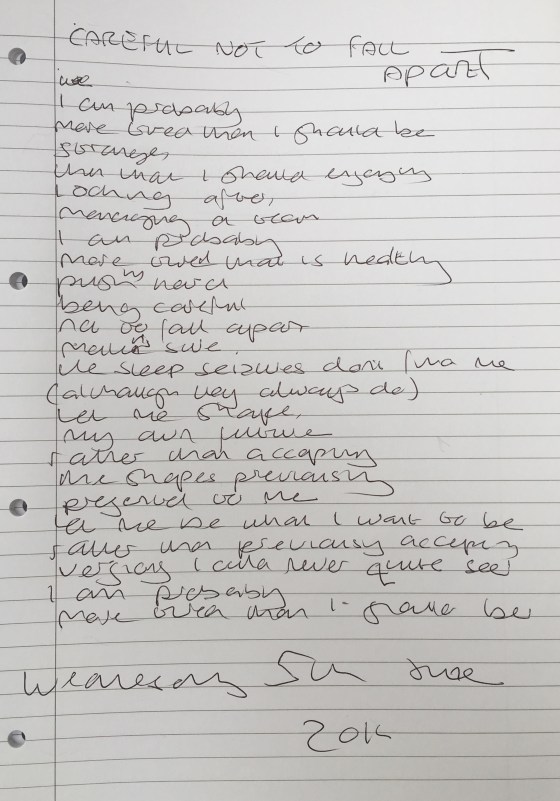 CAREFUL NOT TO FALL
APART
I am probably
more tired than I should be
strange,
than that I should enjoying
looking after,
managing a team
I am probably
more tired that is healthy
pushing hard
being careful
not to fall apart
making sure
the sleep seizures dont find me
(although they always do)
Let me shape,
my own future
rather than accepting
the shapes previously
preserved to me
let me be what I want to be
rather than previously accepting
versions I could never quite see
I am probably
more tired than I should be
Wednesday 5th June